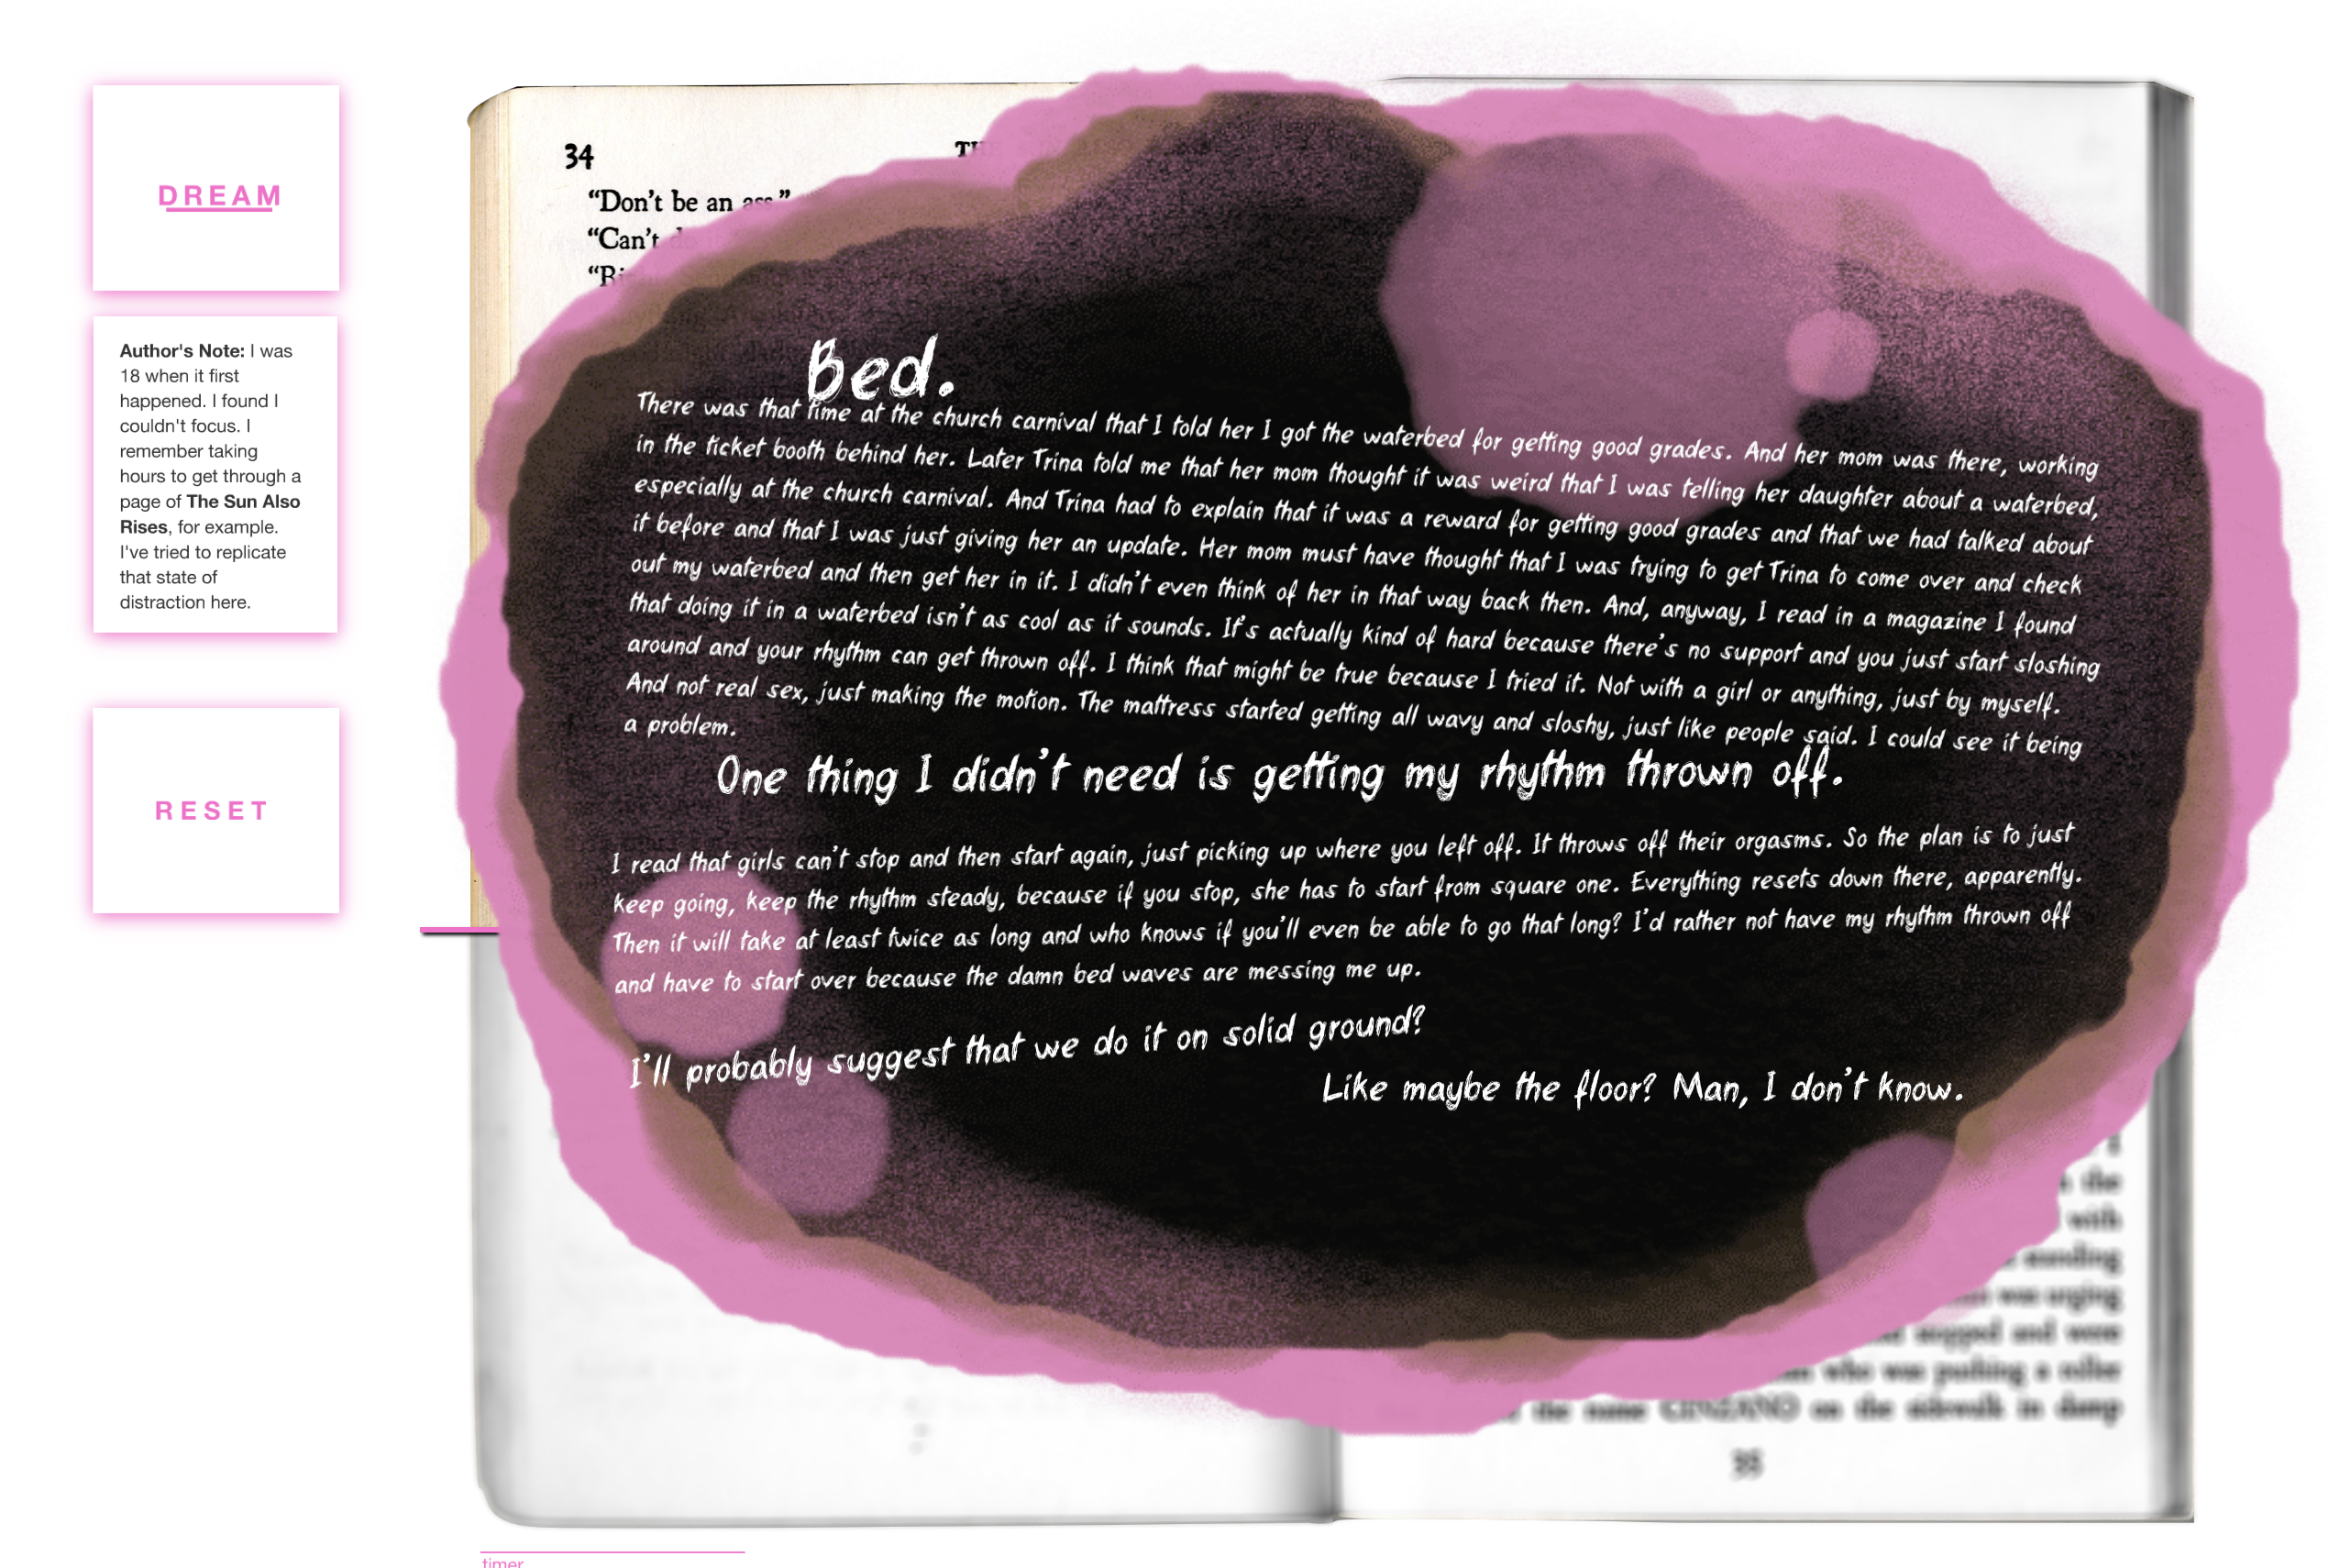 DREAM
Author's Note: I was
18 when it first
happened. I found I
couldn't focus. I
remember taking
hours to get through a
page of The Sun Also
Rises, for example.
I've tried to replicate
that state of
distraction here.
RESET
34
"Don't be an ass."
"Can't do
Bed.
There was that time at the church carnival that I told her I got the waterbed for getting good grades. And her mom was there, working
in the ticket booth behind her. Later Trina told me that her mom thought it was weird that I was telling her daughter about a waterbed,
especially at the church carnival. And Trina had to explain that it was a reward for getting good grades and that we had talked about
it before and that I was just giving her an update. Her mom must have thought that I was trying to get Trina to come over and check
out my waterbed and then get her in it. I didn't even think of her in that way back then. And, anyway, I read in a magazine I found
that doing it in a waterbed isn't as cool as it sounds. It's actually kind of hard because there's no support and you just start sloshing
around and your rhythm can get thrown off. I think that might be true because I tried it. Not with a girl or anything, just by myself.
And not real sex, just making the motion. The mattress started getting all wavy and sloshy, just like people said. I could see it being
a problem.
One thing I didn't need is getting my rhythm thrown off.
I read that girls can't stop and then start again, just picking up where you left off. It throws off their orgasms. So the plan is to just
keep going, keep the rhythm steady, because if you stop, she has to start from square one. Everything resets down there, apparently.
Then it will take at least twice as long and who knows if you'll even be able to go that long? I'd rather not have my rhythm thrown off
and have to start over because the damn bed waves are messing me up.
I'll probably suggest that we do it on solid ground?
Like maybe the floor? Man, I don't know.
the
with
standing
was urging
stopped and were
who was pushing a roller
the name CINZANO on the sidewalk in damp
35
timer